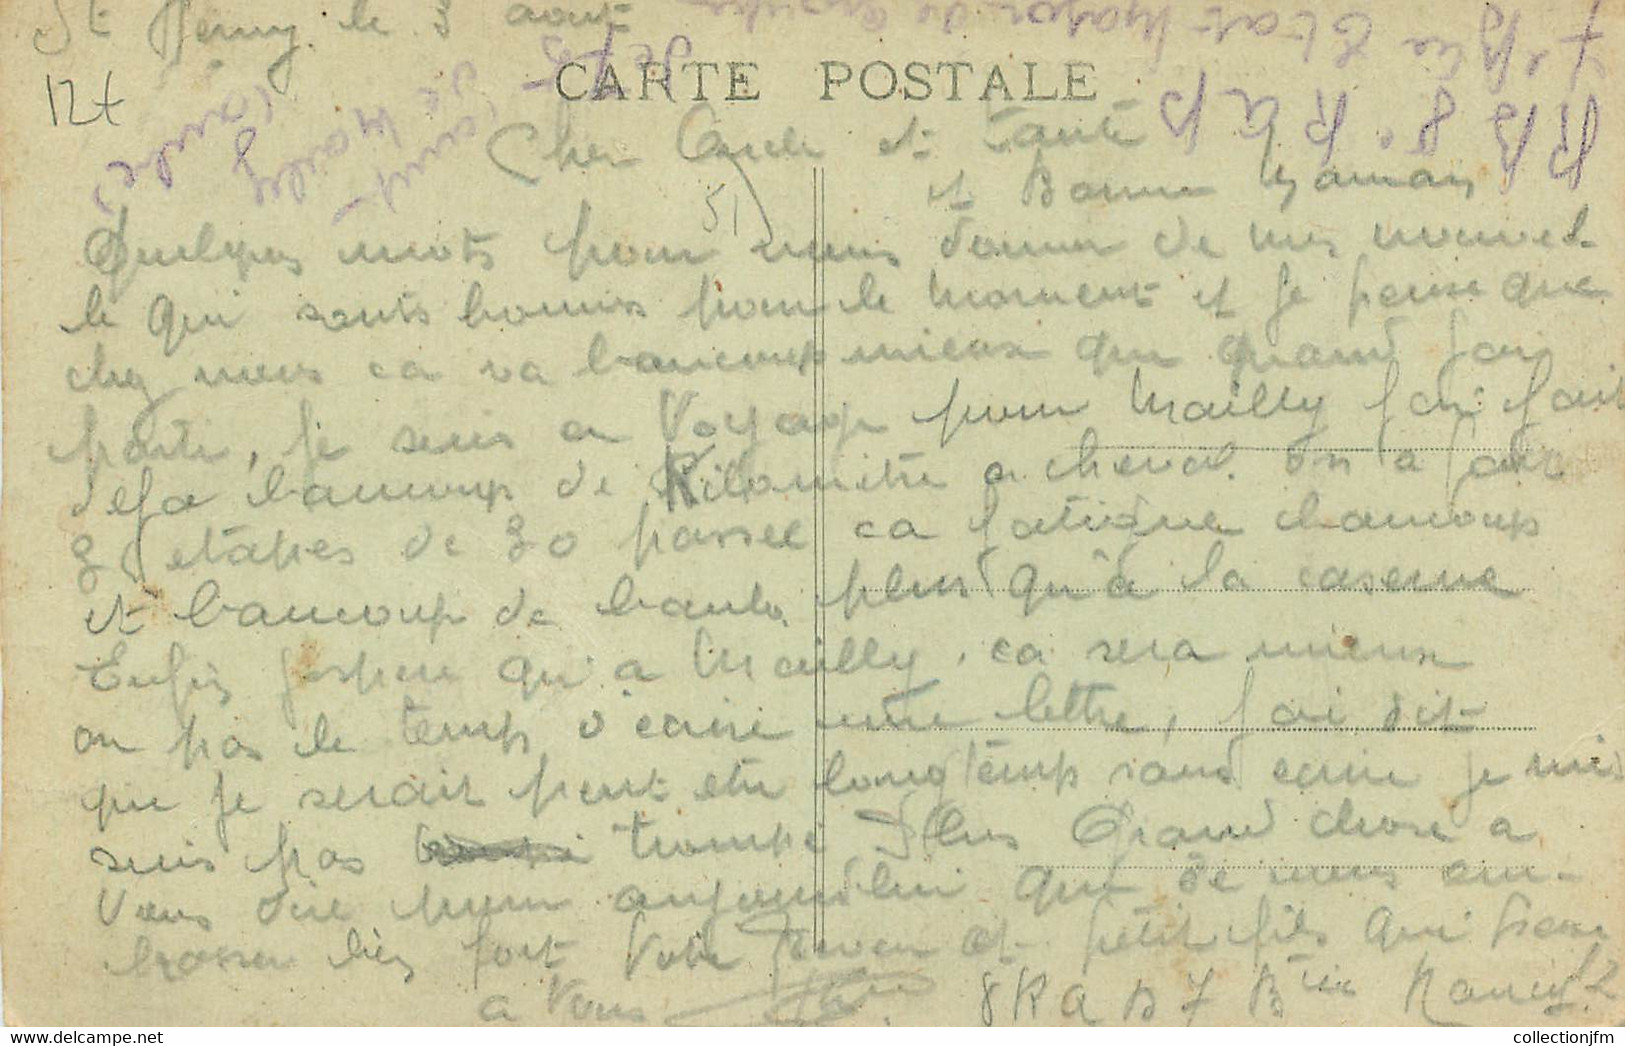 St Remy le 3 aout
12t
CARTE POSTALE
Cher Oncle et Tante
et Bonne Maman
51
Quelques mots pour vous donner de mes nouvel-
le qui sonts bonnes pour le moment et je pense que
chez vous ca va baucoup mieux que quand j'ai
parti, je suis en voyage pour Mailly j'ai fait
deja baucoup de Kilomètre a cheval. on a fait
3 etapes de 30 passee ca fatigue baucoup
et baucoup de boulo plus qu'à la caserne
Enfin j'espere qu'a Mailly, ca sera mieux
on pas le temp d'ecrire une lettre, j'ai dit
que je serait peut etre longtemp sans ecrire je me
suis pas trompé Plus Grand chose a
Vous dire pour aujourd'hui que de vous em-
brasser bien fort Votre Neveu et petit fils qui pense
a Vous
8 R A D 7 Btrie Nancy
7e Btrie Etat Major de
8e R A D
Camp
de Mailly
(Aube)
collectionjfm